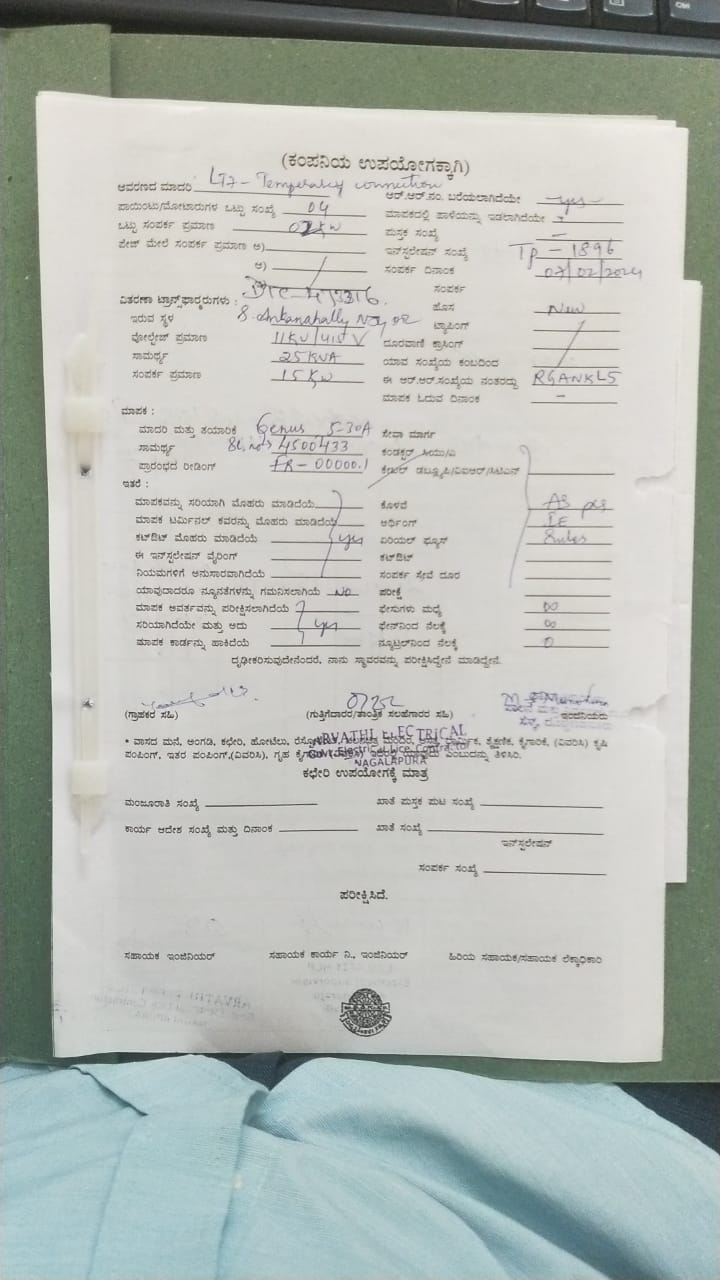 (ಕಂಪನಿಯ ಉಪಯೋಗಕ್ಕಾಗಿ)
ಆವರಣದ ಮಾದರಿ LT7 - Temperary connection ಆರ್.ಆರ್.ನಂ. ಬರೆಯಲಾಗಿದೆಯೇ yes
ಪಾಯಿಂಟು/ಮೋಟಾರುಗಳ ಒಟ್ಟು ಸಂಖ್ಯೆ 04 ಮಾಪಕದಲ್ಲಿ ಹಾಳೆಯನ್ನು ಇಡಲಾಗಿದೆಯೇ -
ಒಟ್ಟು ಸಂಪರ್ಕ ಪ್ರಮಾಣ ಪುಸ್ತಕ ಸಂಖ್ಯೆ -
ಫೇಜ್ ಮೇಲೆ ಸಂಪರ್ಕ ಪ್ರಮಾಣ ಅ) ಇನ್‌ಸ್ಟಲೇಷನ್ ಸಂಖ್ಯೆ Tp - 1896
ಆ) ಸಂಪರ್ಕ ದಿನಾಂಕ 07/02/2024
ಸಂಪರ್ಕ
ವಿತರಣಾ ಟ್ರಾನ್ಸ್‌ಫಾರ್ಮರುಗಳು : ಹೊಸ New
ಇರುವ ಸ್ಥಳ ಟ್ಯಾಪಿಂಗ್
ವೋಲ್ಟೇಜ್ ಪ್ರಮಾಣ 11KV/415 V ದೂರವಾಣಿ ಕ್ರಾಸಿಂಗ್
ಸಾಮರ್ಥ್ಯ 25KVA ಯಾವ ಸಂಖ್ಯೆಯ ಕಂಬದಿಂದ
ಸಂಪರ್ಕ ಪ್ರಮಾಣ 15 Kw ಈ ಆರ್.ಆರ್.ಸಂಖ್ಯೆಯ ನಂತರದ್ದು RGANKL5
ಮಾಪಕ ಓದುವ ದಿನಾಂಕ -
ಮಾಪಕ :
ಮಾದರಿ ಮತ್ತು ತಯಾರಿಕೆ Genus 5-30A ಸೇವಾ ಮಾರ್ಗ
ಸಾಮರ್ಥ್ಯ Sl. no> 4500433 ಕಂಡಕ್ಟರ್ ಸಿಯು/ಎ
ಪ್ರಾರಂಭದ ರೀಡಿಂಗ್ FR - 00000.1 ಕೇಬಲ್ ಡಬ್ಲ್ಯೂಪಿ/ವಿಐಆರ್/ಸಿಟಿಎಸ್
ಇತರೆ :
ಮಾಪಕವನ್ನು ಸರಿಯಾಗಿ ಮೊಹರು ಮಾಡಿದೆಯೆ ಕೊಳವೆ AS per
ಮಾಪಕ ಟರ್ಮಿನಲ್ ಕವರನ್ನು ಮೊಹರು ಮಾಡಿದೆಯೆ ಅರ್ಥಿಂಗ್ IE
ಕಟ್‌ಔಟ್ ಮೊಹರು ಮಾಡಿದೆಯೆ yes ಏರಿಯಲ್ ಫ್ಯೂಸ್ Rules
ಈ ಇನ್‌ಸ್ಟಲೇಷನ ವೈರಿಂಗ್ ಕಟ್‌ಔಟ್
ನಿಯಮಗಳಿಗೆ ಅನುಸಾರವಾಗಿದೆಯೆ ಸಂಪರ್ಕ ಸೇವೆ ದೂರ
ಯಾವುದಾದರೂ ನ್ಯೂನತೆಗಳನ್ನು ಗಮನಿಸಲಾಗಿಯೆ No ಪರೀಕ್ಷೆ
ಮಾಪಕ ಅವರ್ತವನ್ನು ಪರೀಕ್ಷಿಸಲಾಗಿದೆಯೆ ಫೇಸುಗಳು ಮಧ್ಯೆ ∞
ಸರಿಯಾಗಿದೆಯೇ ಮತ್ತು ಅದು yes ಫೇಸ್‌ನಿಂದ ನೆಲಕ್ಕೆ ∞
ಮಾಪಕ ಕಾರ್ಡನ್ನು ಹಾಕಿದೆಯೆ ನ್ಯೂಟ್ರಲ್‌ನಿಂದ ನೆಲಕ್ಕೆ 0
ದೃಢೀಕರಿಸುವುದೇನೆಂದರೆ, ನಾನು ಸ್ಥಾವರವನ್ನು ಪರೀಕ್ಷಿಸಿದ್ದೇನೆ ಮಾಡಿದ್ದೇನೆ.
(ಗ್ರಾಹಕರ ಸಹಿ) (ಗುತ್ತಿಗೆದಾರರ/ತಾಂತ್ರಿಕ ಸಲಹೆಗಾರರ ಸಹಿ) ಇಂಜಿನಿಯರು
ARVATHI ELECTRICAL
• ವಾಸದ ಮನೆ, ಅಂಗಡಿ, ಕಛೇರಿ, ಹೋಟೆಲು, ಶೈಕ್ಷಣಿಕ, ಕೈಗಾರಿಕೆ, (ವಿವರಿಸಿ) ಕೃಷಿ
Govt. Electrical Lice. Contractor
ಪಂಪಿಂಗ್, ಇತರ ಪಂಪಿಂಗ್,(ವಿವರಿಸಿ), ಗೃಹ ಎಂಬುದನ್ನು ತಿಳಿಸಿರಿ.
NAGALAPURA
ಕಛೇರಿ ಉಪಯೋಗಕ್ಕೆ ಮಾತ್ರ
ಮಂಜೂರಾತಿ ಸಂಖ್ಯೆ ಖಾತೆ ಪುಸ್ತಕ ಪುಟ ಸಂಖ್ಯೆ
ಕಾರ್ಯ ಆದೇಶ ಸಂಖ್ಯೆ ಮತ್ತು ದಿನಾಂಕ ಖಾತೆ ಸಂಖ್ಯೆ
ಇನ್‌ಸ್ಟಲೇಷನ್
ಸಂಪರ್ಕ ಸಂಖ್ಯೆ
ಪರೀಕ್ಷಿಸಿದೆ.
ಸಹಾಯಕ ಇಂಜಿನಿಯರ್ ಸಹಾಯಕ ಕಾರ್ಯ ನಿ., ಇಂಜಿನಿಯರ್ ಹಿರಿಯ ಸಹಾಯಕ/ಸಹಾಯಕ ಲೆಕ್ಕಾಧಿಕಾರಿ